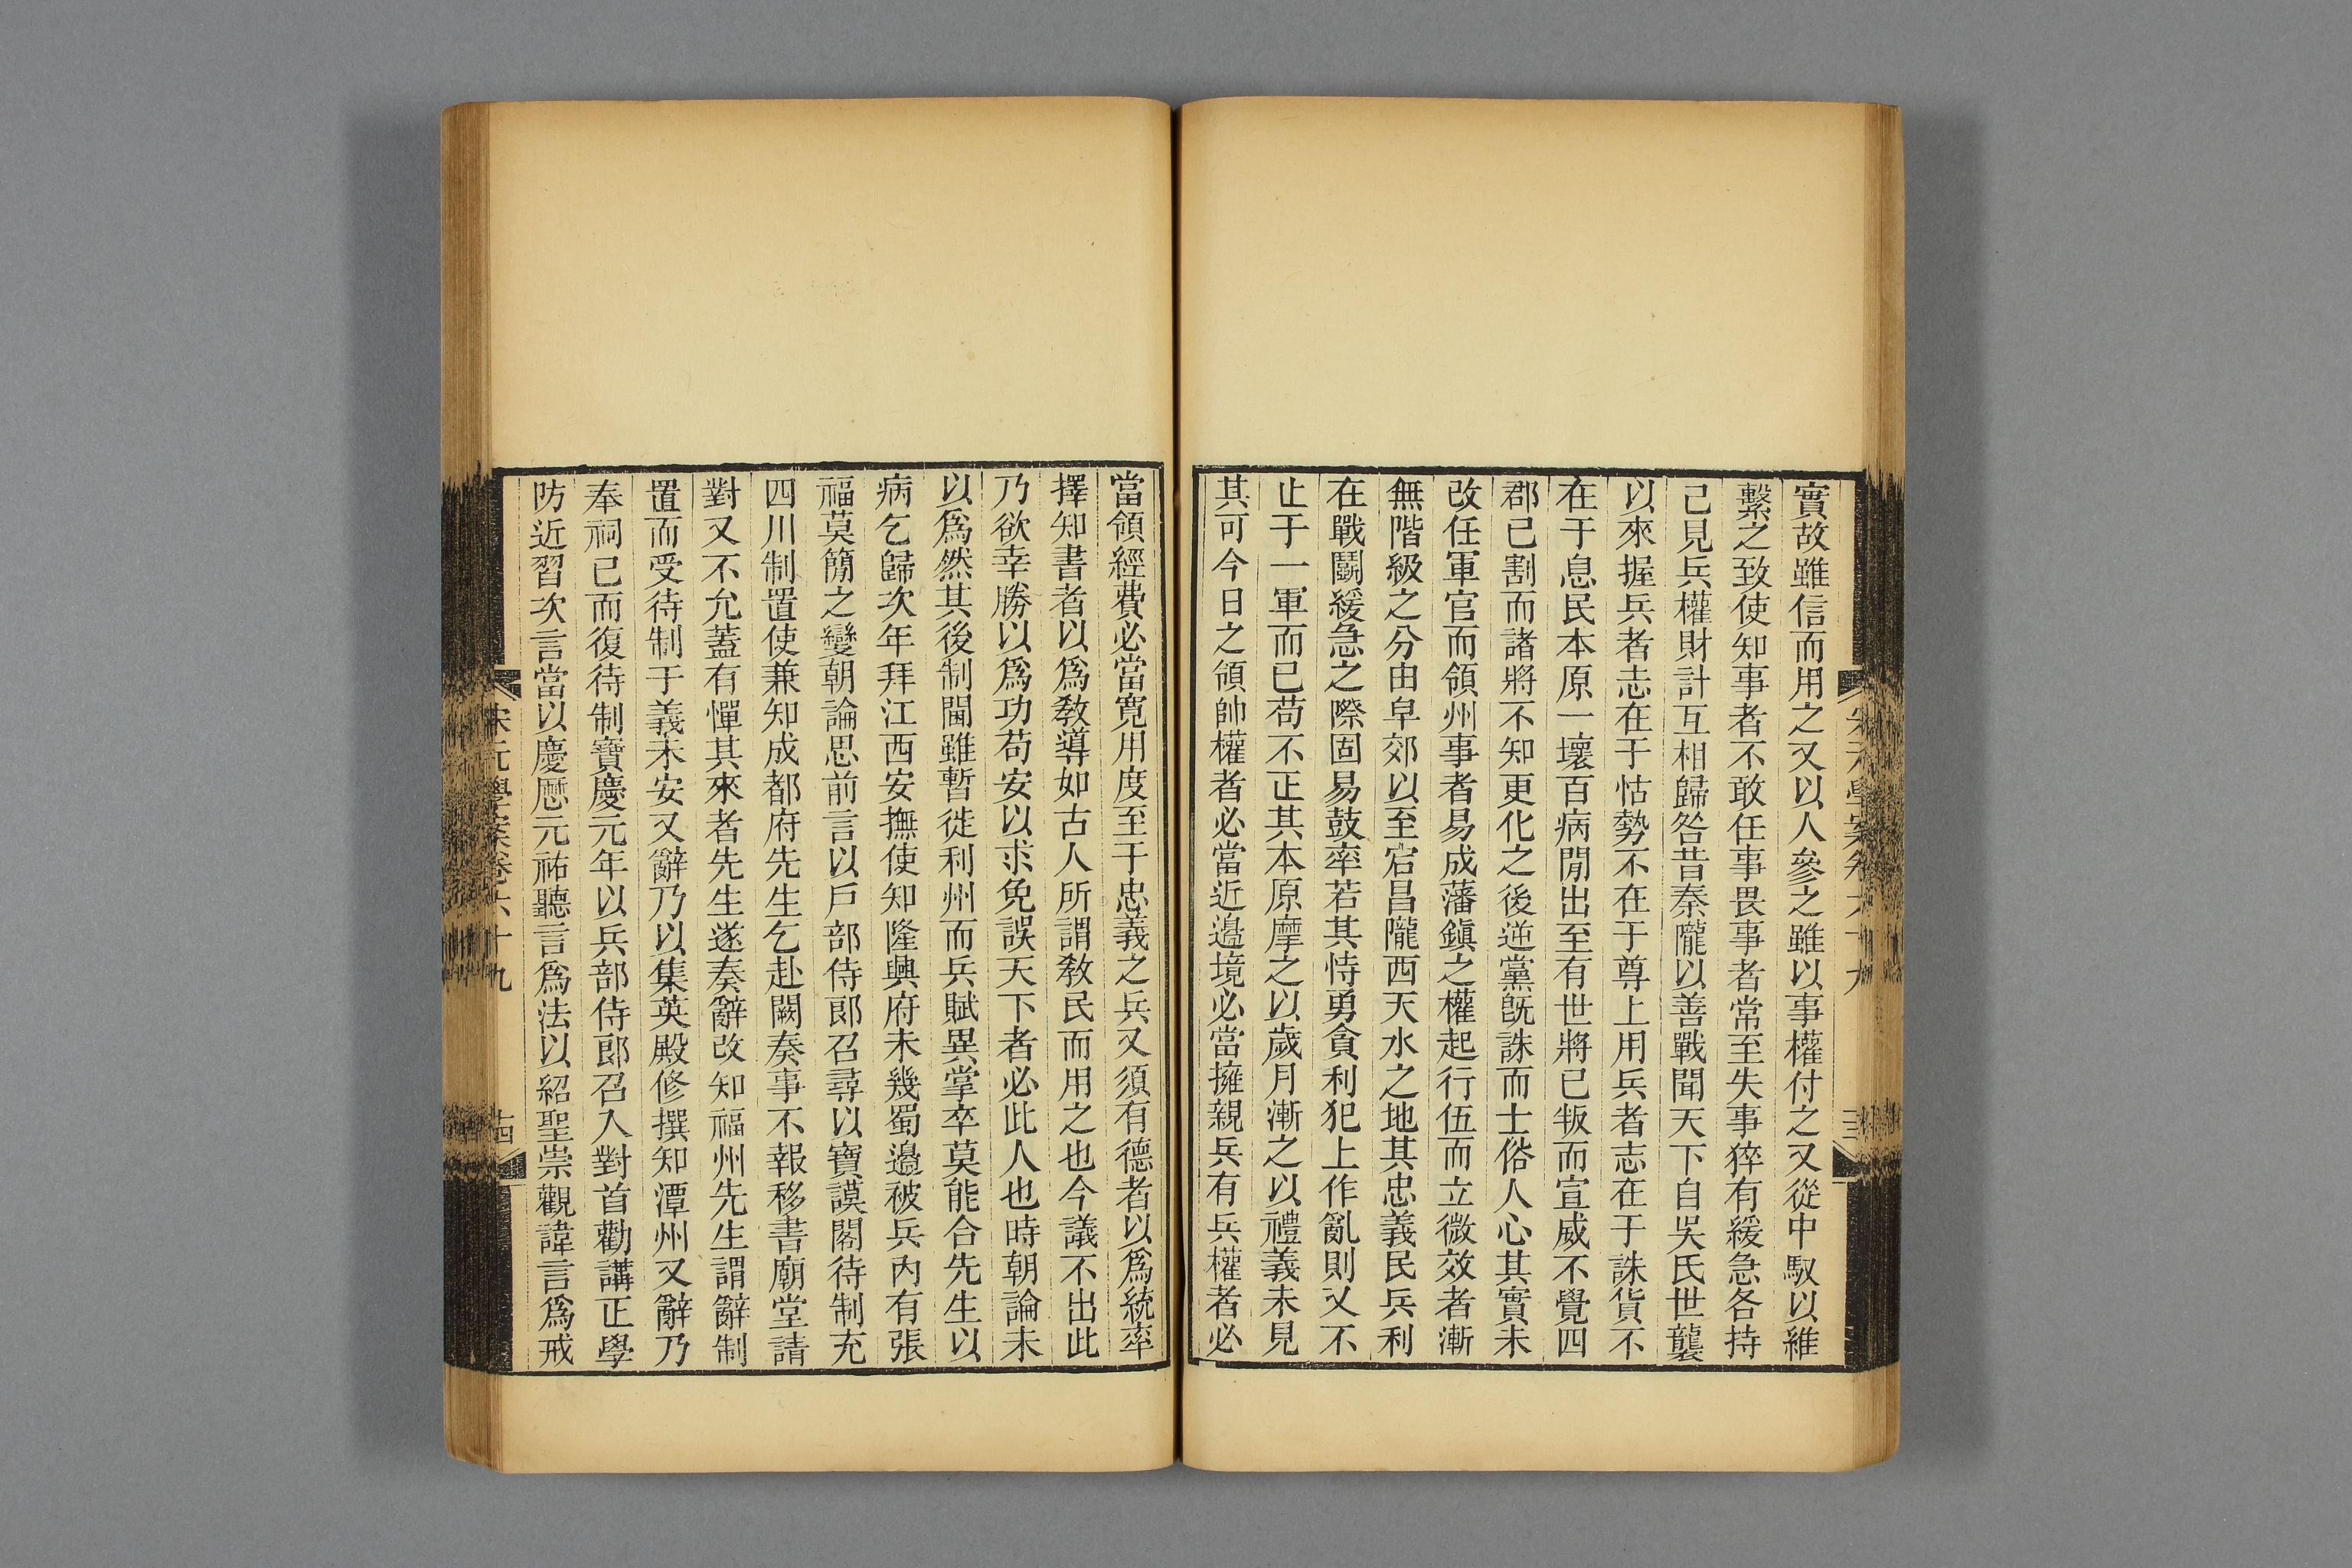 實故雖信而用之又以人參之雖以事權付之又從中馭以維
繫之致使知事者不敢任事畏事者常至失事猝有緩急各持
己見兵權財計互相歸咎昔秦隴以善戰聞天下自吳氏世襲
以來握兵者志在于怙勢不在于尊上用兵者志在于誅貨不
在于息民本原一壞百病閒出至有世將已叛而宣威不覺四
郡已割而諸將不知更化之後逆黨旣誅而士俗人心其實未
改任軍官而領州事者易成藩鎭之權起行伍而立微效者漸
無階級之分由皁郊以至宕昌隴西天水之地其忠義民兵利
在戰鬭緩急之際固易鼓率若其恃勇貪利犯上作亂則又不
止于一軍而已苟不正其本原摩之以歲月漸之以禮義未見
其可今日之領帥權者必當近邊境必當擁親兵有兵權者必
宋元學案卷六十九
當領經費必當寬用度至于忠義之兵又須有德者以爲統率
擇知書者以爲敎導如古人所謂敎民而用之也今議不出此
乃欲幸勝以爲功苟安以求免誤天下者必此人也時朝論未
以爲然其後制閫雖暫徙利州而兵賦異掌卒莫能合先生以
病乞歸次年拜江西安撫使知隆興府未幾蜀邊被兵內有張
福莫簡之變朝論思前言以戶部侍郎召尋以寶謨閣待制充
四川制置使兼知成都府先生乞赴闕奏事不報移書廟堂請
對又不允蓋有憚其來者先生遂奏辭改知福州先生謂辭制
置而受待制于義未安又辭乃以集英殿修撰知潭州又辭乃
奉祠已而復待制寶慶元年以兵部侍郎召入對首勸講正學
防近習次言當以慶厯元祐聽言爲法以紹聖崇觀諱言爲戒
宋元學案卷六十九
十四